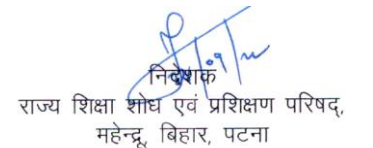 निदेशक
राज्य शिक्षा शोध एवं प्रशिक्षण परिषद्,
महेन्द्रू, बिहार, पटना